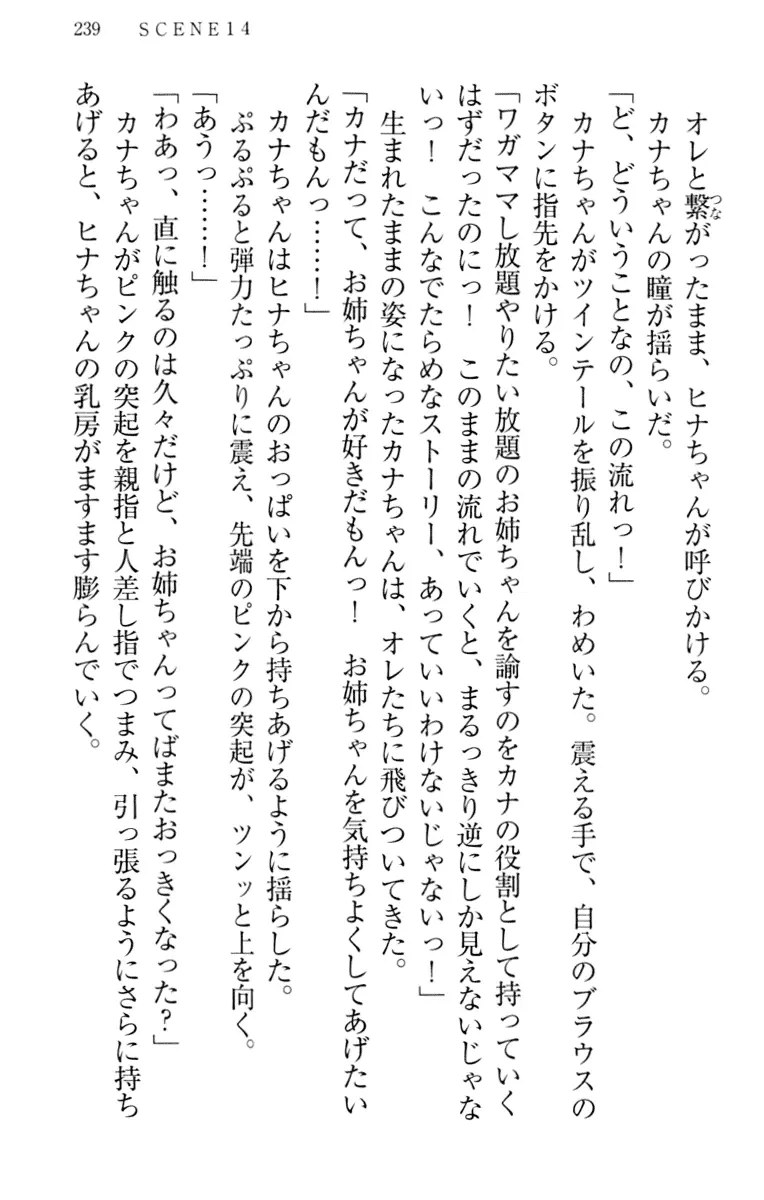 239　SCENE14
　オレと繋がったまま、ヒナちゃんが呼びかける。
　カナちゃんの瞳が揺らいだ。
「ど、どういうことなの、この流れっ！」
　カナちゃんがツインテールを振り乱し、わめいた。震える手で、自分のブラウスの
ボタンに指先をかける。
「ワガママし放題やりたい放題のお姉ちゃんを諭すのをカナの役割として持っていく
はずだったのにっ！　このままの流れでいくと、まるっきり逆にしか見えないじゃな
いっ！　こんなでたらめなストーリー、あっていいわけないじゃないっ！」
　生まれたままの姿になったカナちゃんは、オレたちに飛びついてきた。
「カナだって、お姉ちゃんが好きだもんっ！　お姉ちゃんを気持ちよくしてあげたい
んだもんっ……！」
　カナちゃんはヒナちゃんのおっぱいを下から持ちあげるように揺らした。
　ぷるぷると弾力たっぷりに震え、先端のピンクの突起が、ツンッと上を向く。
「あうっ……！」
「わあっ、直に触るのは久々だけど、お姉ちゃんってばまたおっきくなった？」
　カナちゃんがピンクの突起を親指と人差し指でつまみ、引っ張るようにさらに持ち
あげると、ヒナちゃんの乳房がますます膨らんでいく。